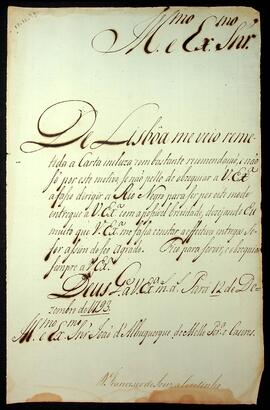 Illmo e Exmo Snr.
De Lisbôa me veio reme-
tida a Carta incluza com bastante recomendaçaõ, e naõ
só por este motivo, se naõ pello de obsequiar a V. Exa.
a faço dirigir a Rio Negro para ser por este modo
entregue a V. Exa. com a possivel brevidade, dezejando eu
muito que V. Exa. me faça constar a effectiva entrega
for do seu agrado. Fico para servir, e obsequiar
sempre a V. Exa.
Deus Ge. a V. Exa. m. a. Pará 12 de De-
zembro de 1793.
Illmo e Exmo Snr. Joaõ d'Albuquerque de Mello Pera. e Caceres.
D. Francisco de Souza Coutinho